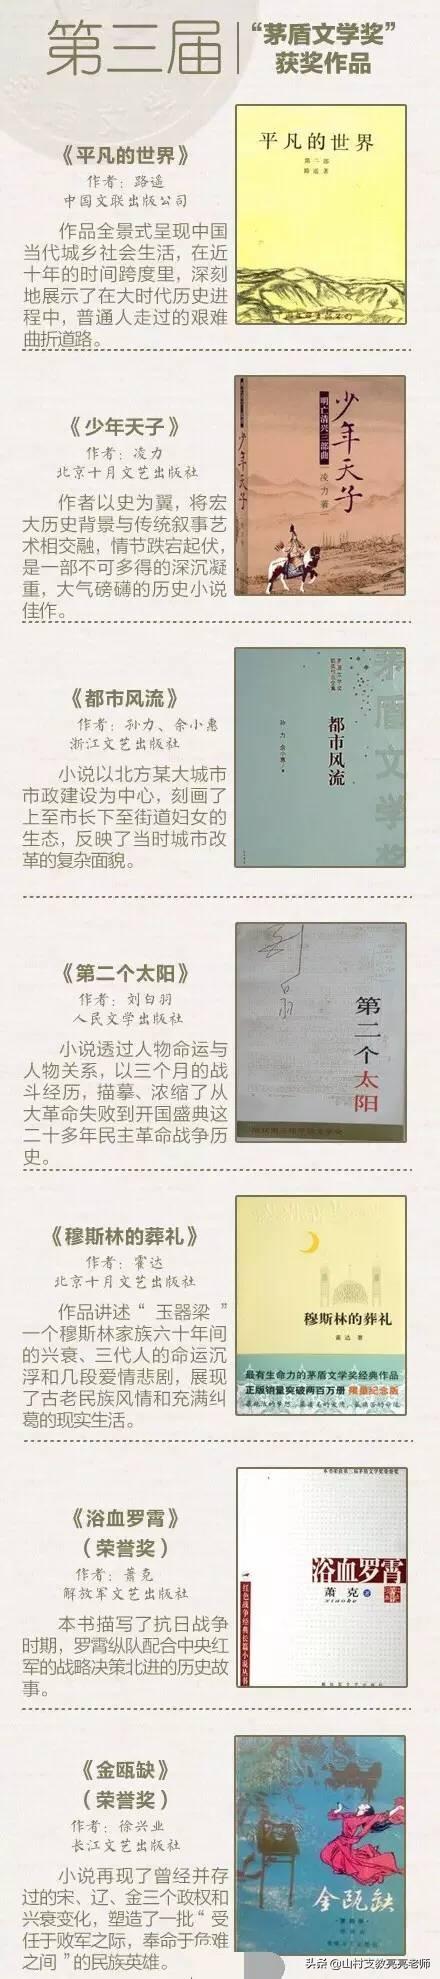 第三届
“茅盾文学奖”
获奖作品
《平凡的世界》
作者：路遥
中国文联出版公司
作品全景式呈现中国
当代城乡社会生活，在近
十年的时间跨度里，深刻
地展示了在大时代历史进
程中，普通人走过的艰难
曲折道路。
平凡的世界
第二部
路遥著
《少年天子》
作者：凌力
北京十月文艺出版社
作者以史为翼，将宏
大历史背景与传统叙事艺
术相交融，情节跌宕起伏，
是一部不可多得的深沉凝
重，大气磅礴的历史小说
佳作。
少年天子
明亡清兴三部曲
凌力著
少年天子
《都市风流》
作者：孙力、余小惠
浙江文艺出版社
小说以北方某大城市
市政建设为中心，刻画了
上至市长下至街道妇女的
生态，反映了当时城市改
革的复杂面貌。
茅盾文学奖
都市风流
孙力 余小惠
《第二个太阳》
作者：刘白羽
人民文学出版社
小说透过人物命运与
人物关系，以三个月的战
斗经历，描摹、浓缩了从
大革命失败到开国盛典这
二十多年民主革命战争历
史。
第二个太阳
《穆斯林的葬礼》
作者：霍达
北京十月文艺出版社
作品讲述“玉器梁”
一个穆斯林家族六十年间
的兴衰、三代人的命运沉
浮和几段爱情悲剧，展现
了古老民族风情和充满纠
葛的现实生活。
穆斯林的葬礼
霍达 著
最有生命力的茅盾文学奖经典作品
正版销量突破两百万册 限量纪念版
《浴血罗霄》
（荣誉奖）
作者：萧克
解放军文艺出版社
本书描写了抗日战争
时期，罗霄纵队配合中央红
军的战略决策北进的历史故
事。
浴血罗霄
萧克 著
xiaoke
红色战争经典长篇小说丛书
《金瓯缺》
（荣誉奖）
作者：徐兴业
长江文艺出版社
小说再现了曾经并存
过的宋、辽、金三个政权和
兴衰变化，塑造了一批“受
任于败军之际，奉命于危难
之间”的民族英雄。
金瓯缺
头条 @山村支教亮亮老师